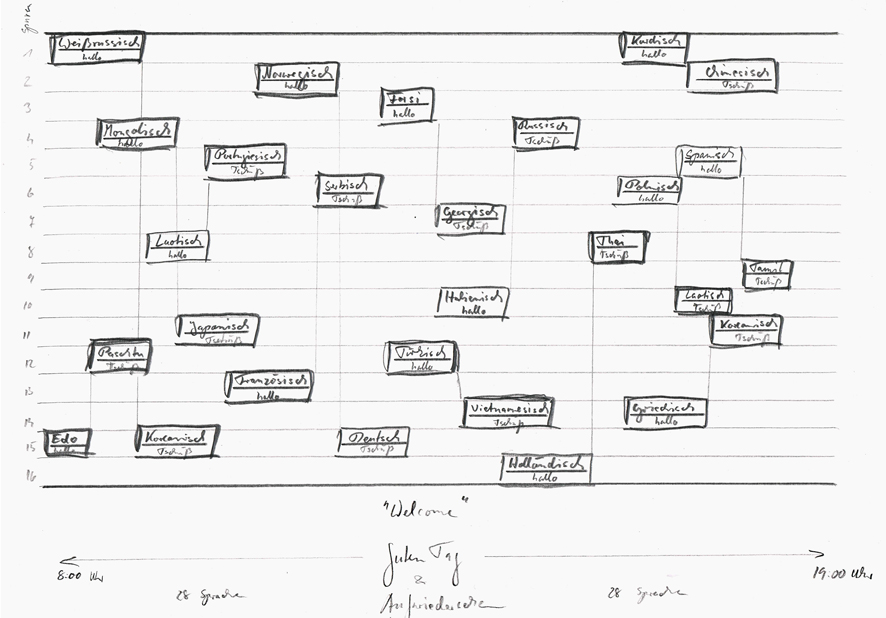 Spuren
1
Weißrussisch
hallo
Kurdisch
hallo
2
Norwegisch
hallo
Chinesisch
Tschüß
3
Farsi
hallo
4
Mongolisch
hallo
Russisch
Tschüß
5
Portugiesisch
Tschüß
Spanisch
hallo
6
Serbisch
Tschüß
Polnisch
hallo
7
Georgisch
Tschüß
8
Laotisch
hallo
Thai
Tschüß
9
Tamil
Tschüß
10
Italienisch
hallo
Laotisch
Tschüß
11
Japanisch
Tschüß
Koreanisch
Tschüß
12
Paschtu
Tschüß
Türkisch
hallo
13
Französisch
hallo
14
Vietnamesisch
Tschüß
Griechisch
hallo
15
Edo
hallo
Koreanisch
Tschüß
Deutsch
Tschüß
16
Holländisch
hallo
"Welcome"
8:00 Uhr
Guten Tag
19.00 Uhr
&
28 Sprache
28 Sprache
Aufwiedersehen